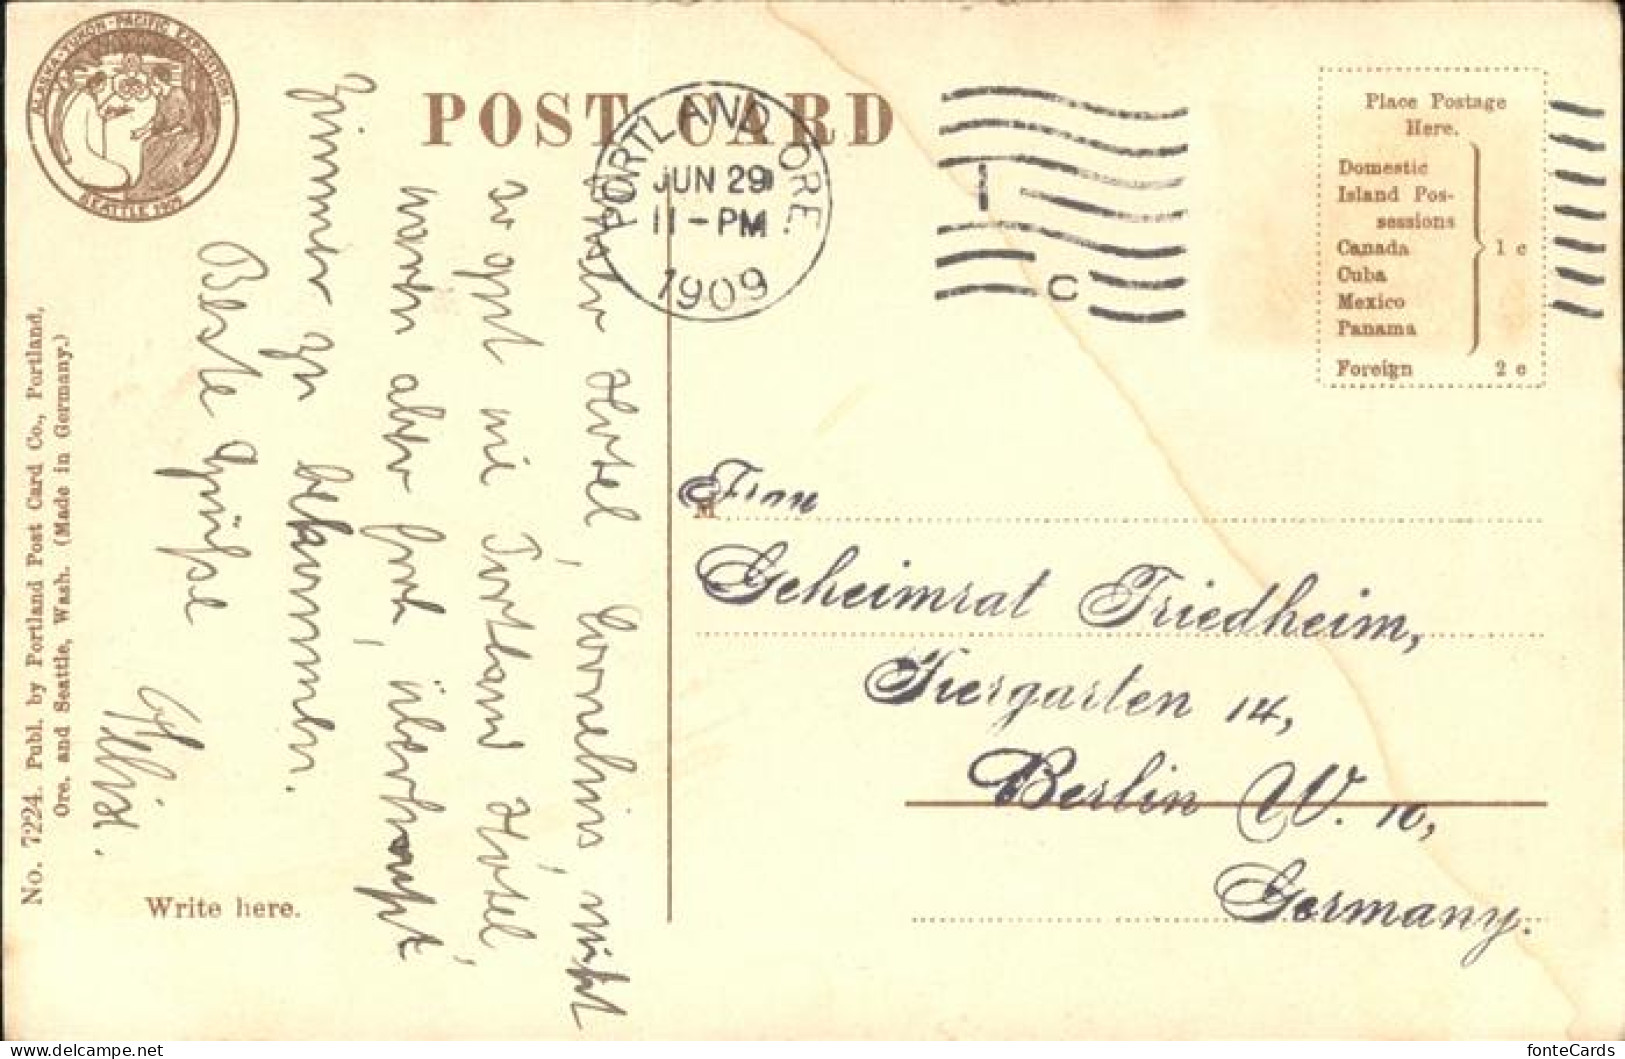 ALASKA-YUKON-PACIFIC EXPOSITION
SEATTLE 1909
POST CARD
PORTLAND, ORE.
JUN 29
11-PM
1909
1
C
Place Postage
Here.
Domestic
Island Pos-
sessions
Canada
Cuba
Mexico
Panama
1 c
Foreign 2 c
Hotel, Cornelius, nicht
so gut wie Portland Hotel,
waren aber froh, überhaupt
Zimmer zu bekommen.
Beste Grüsse
Felix.
M
Frau
Geheimrat Friedheim,
Tiergarten 14,
Berlin W. 10,
Germany.
Write here.
No. 7224. Publ. by Portland Post Card Co., Portland,
Ore. and Seattle, Wash. (Made in Germany.)
fonteCards